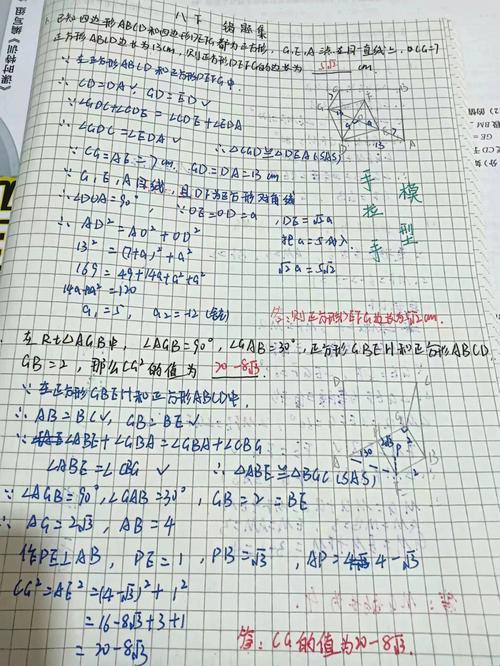 八下 错题集
已知四边形ABCD和四边形DEFG都为正方形，G,E,A三点在同一直线上，且CG=7
正方形ABCD边长为13cm，则正方形DEFG的边长为 5√2 cm.
∵在正方形ABCD和正方形DEFG中.
∴CD=DA√, GD=ED√
∴∠GDC+∠CDE=∠CDE+∠EDA
∴∠GDC=∠EDA√ ∴△CGD≌△DEA(SAS)
∵CG=AE=7cm, CD=DA=13cm
∵G,E,A共线，且DF为正方形对角线
∴∠DOA=90°, ∵OE=OD=a, DE=√2a
∴AD²=AO²+OD² 把a=5代入
13²=(7+a)²+a² √2a=5√2
169=49+14a+a²+a²
14a+2a²=120
a₁=5, a₂=-12(舍去)
手拉手
模型
答:则正方形DEFG边长为5√2cm.
在Rt△AGB中，∠AGB=90°，∠GAB=30°，正方形GBEH和正方形ABCD
GB=2，那么CG²的值为 20-8√3
∵在正方形GBEH和正方形ABCD中.
∴AB=BC√, GB=BE√
∴∠ABE+∠GBA=∠GBA+∠CBG
∠ABE=∠CBG √ ∴△ABE≌△BGC(SAS)
∵∠AGB=90°,∠GAB=30°, GB=2=BE
∴AG=2√3, AB=4
作PE⊥AB, PE=1, PB=√3, AP=4-√3
CG²=AE²=(4-√3)²+1²
=16-8√3+3+1
=20-8√3
答:CG的值为20-8√3
《课时特训》
编写组